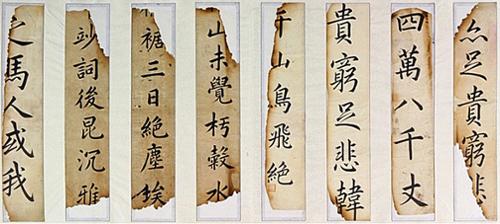 足貴窮悲
四萬八千丈
貴窮足悲韓
千山鳥飛絕
山未覺朽穀水
裾三日絕塵埃
竗詞後昆沉雅
之馬人或我